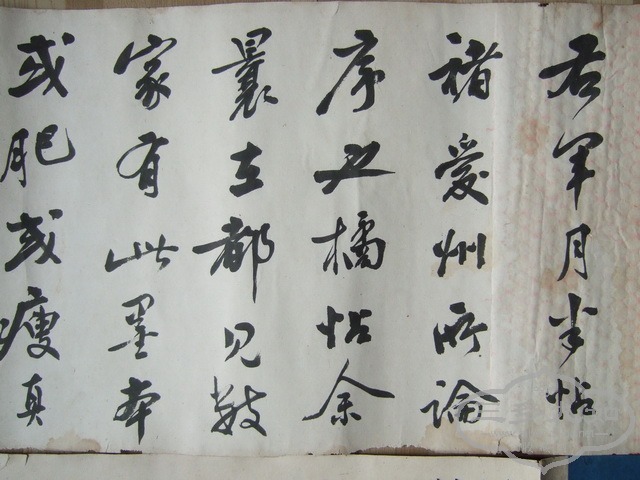 右軍月半帖
褚愛州所論
序橘帖余
曩在都見數
家有此墨本
或肥或瘦真